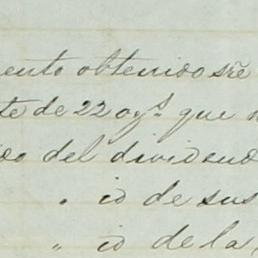 ento obtenido sr̃e
te de 22 ozs. que
do del dividend
" id de sus
" id de la